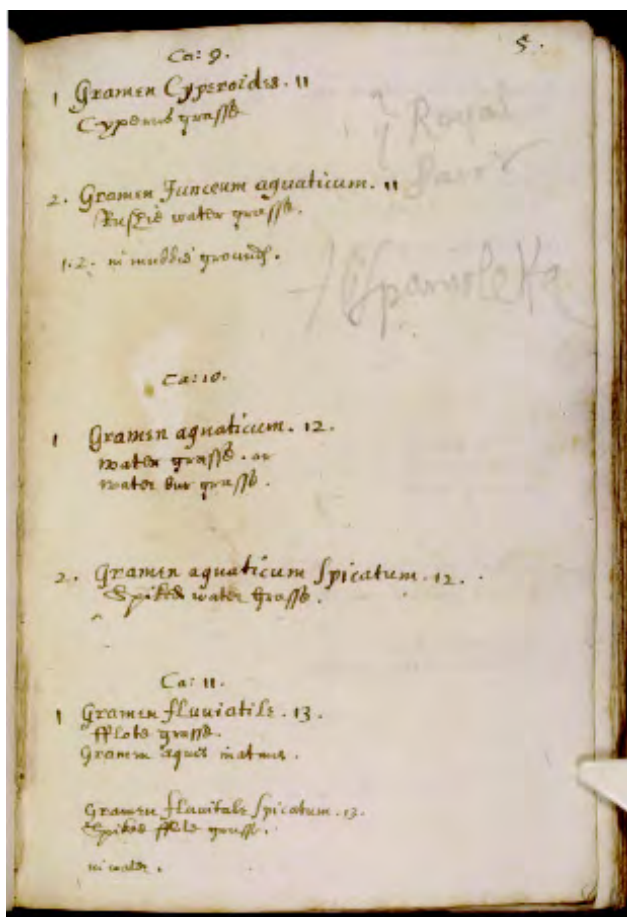 5.
Ca: 9.
1 Gramen Cyperoides. 11
Cyperus grasse
y Royal
2. Gramen Junceum aquaticum. 11
Rushie water grasse.
1.2. in muddie grounds.
Ca: 10.
1 Gramen aquaticum. 12.
water grasse. or
water bur grasse.
2. Gramen aquaticum spicatum. 12.
Spiked water grasse.
Ca: 11.
1 Gramen fluviatile. 13.
fflote grasse.
Gramen aquis innatans.
Gramen fluvitale spicatum. 13.
Spiked fflote grasse.
in water.